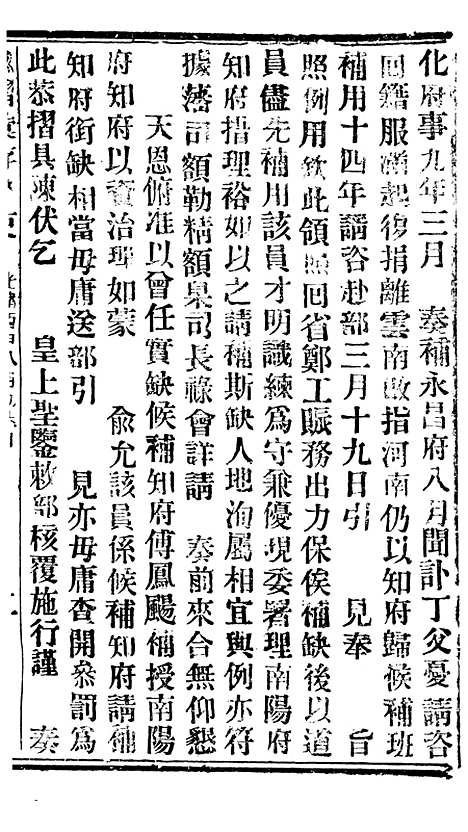 化府事九年三月　奏補永昌府八月聞訃丁父憂請咨
回籍服滿起復捐離雲南改指河南仍以知府歸候補班
補用十四年請咨赴部三月十九日引　見奉　旨
照例用欽此領照回省鄭工賑務出力保俟補缺後以道
員儘先補用該員才明識練為守兼優現委署理南陽府
知府措理裕如以之請補斯缺人地洵屬相宜與例亦符
據藩司額勒精額臬司長祿會詳請　奏前來合無仰懇
天恩俯准以曾任實缺候補知府傅鳳颺補授南陽
府知府以資治理如蒙　俞允該員係候補知府請補
知府銜缺相當毋庸送部引　見亦毋庸查開叅罰為
此恭摺具陳伏乞　皇上聖鑒敕部核覆施行謹　奏